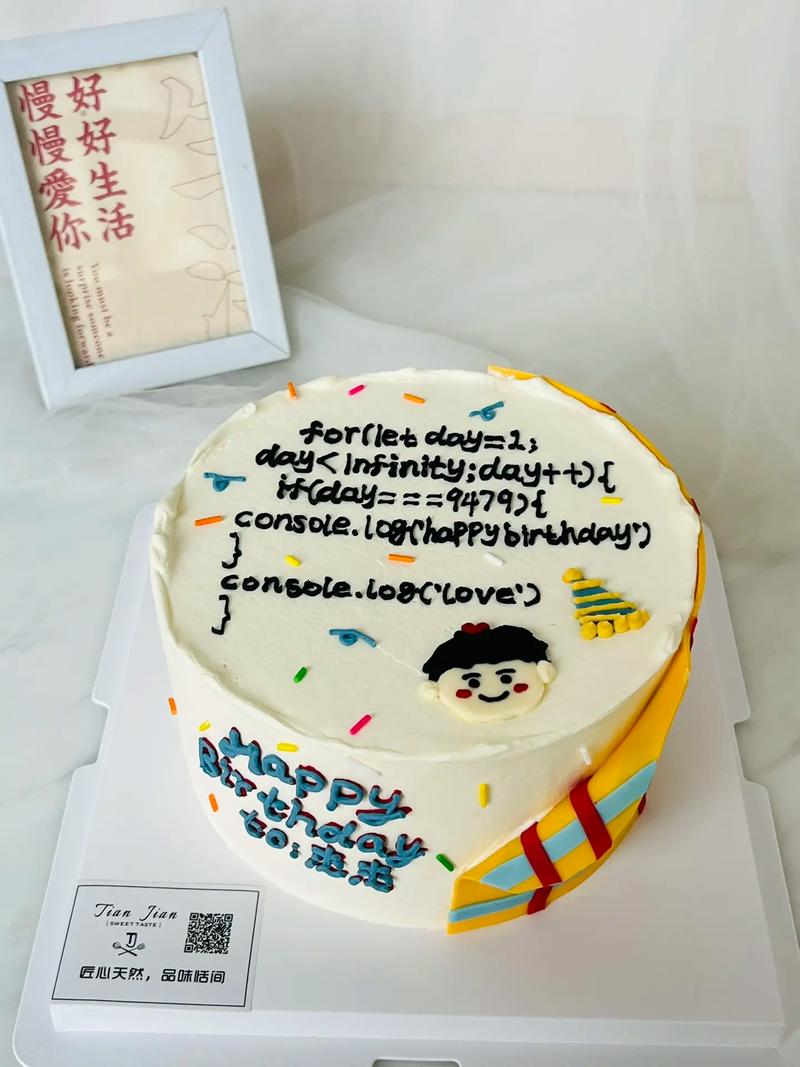 好好生活
慢慢愛你
You must be a
surprise someone
is looking forward
for(let day=1;
day<Infinity;day++){
if(day===9479){
console.log('happy birthday')
}
console.log('love')
}
Happy
Birthday
to:
Tian Jian
SWEET TASTE
TJ
匠心天然，品味恬间